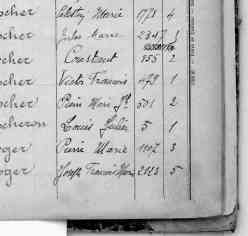 ocher Marie 1771 4
ocher Jules Marie 2347 1
ocher Constant 155 2
ocher Victor Francois 479 1
ocher Pierre Marie 501 2
ocheron Louis Julien 5 1
oger Pierre Marie 1107 3
oger Joseph Francois Marie 2123 5